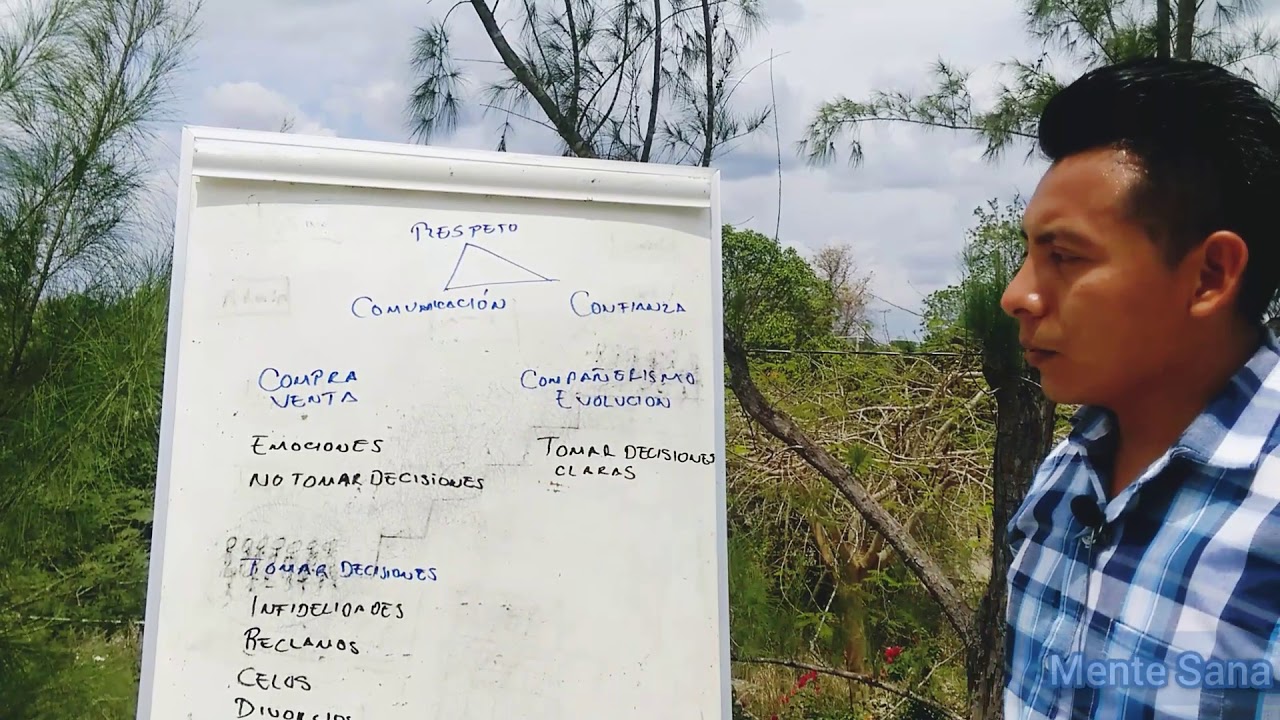 RESPETO
COMUNICACIÓN CONFIANZA
COMPRA
VENTA
COMPAÑERISMO
EVOLUCION
EMOCIONES
NO TOMAR DECISIONES
TOMAR DECISIONES
CLARAS
TOMAR DECISIONES
INFIDELIDADES
RECLAMOS
CELOS
DIVORCIOS
Mente Sana